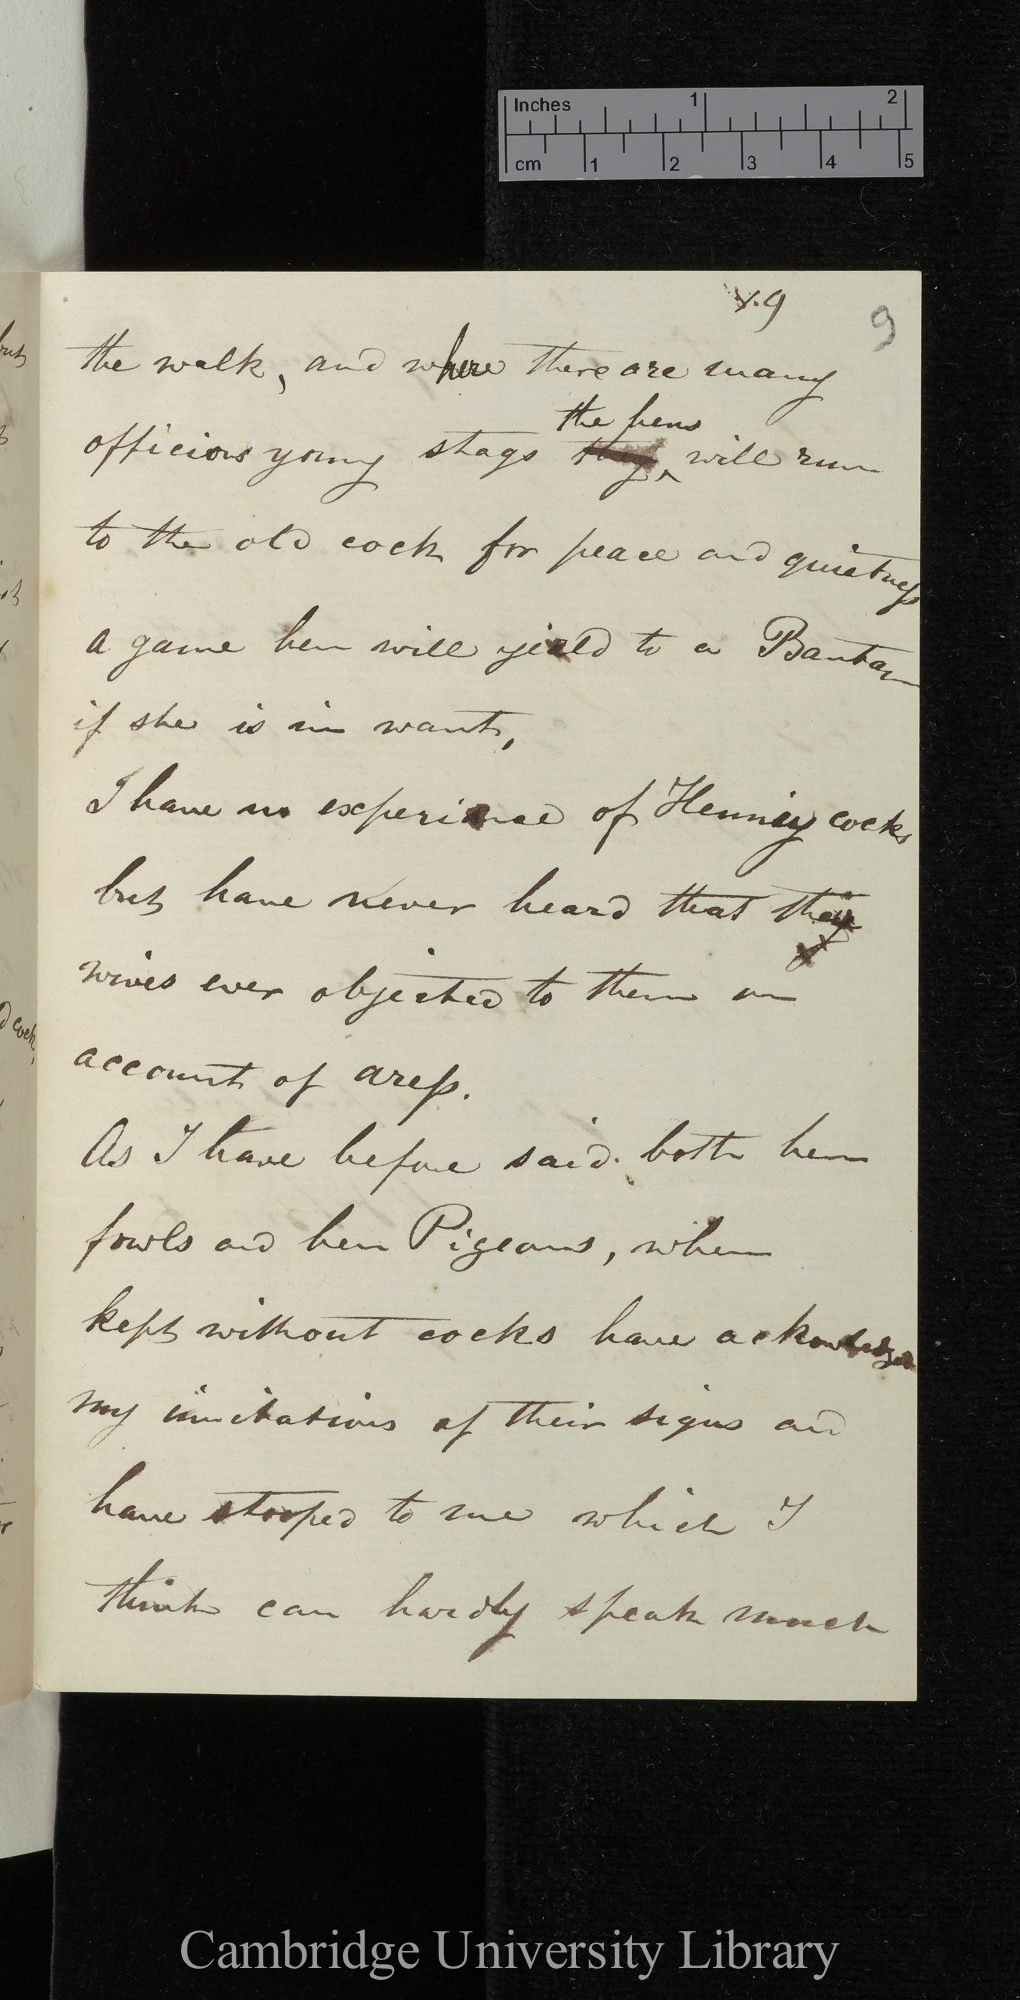 Inches 1 2
cm 1 2 3 4 5
9
9
the walk, and where there are many
the hens
officious young stags they will run
to the old cock for peace and quietness
a game hen will yield to a Bantam
if she is in want,
I have no experience of Henney cocks
but have never heard that their
wives ever objected to them on
account of dress.
As I have before said both hen
fowls and hen Pigeons, when
kept without cocks have acknowledged
my imitations of their signs and
have stooped to me which I
think can hardly speak much
but
d cock,
Cambridge University Library